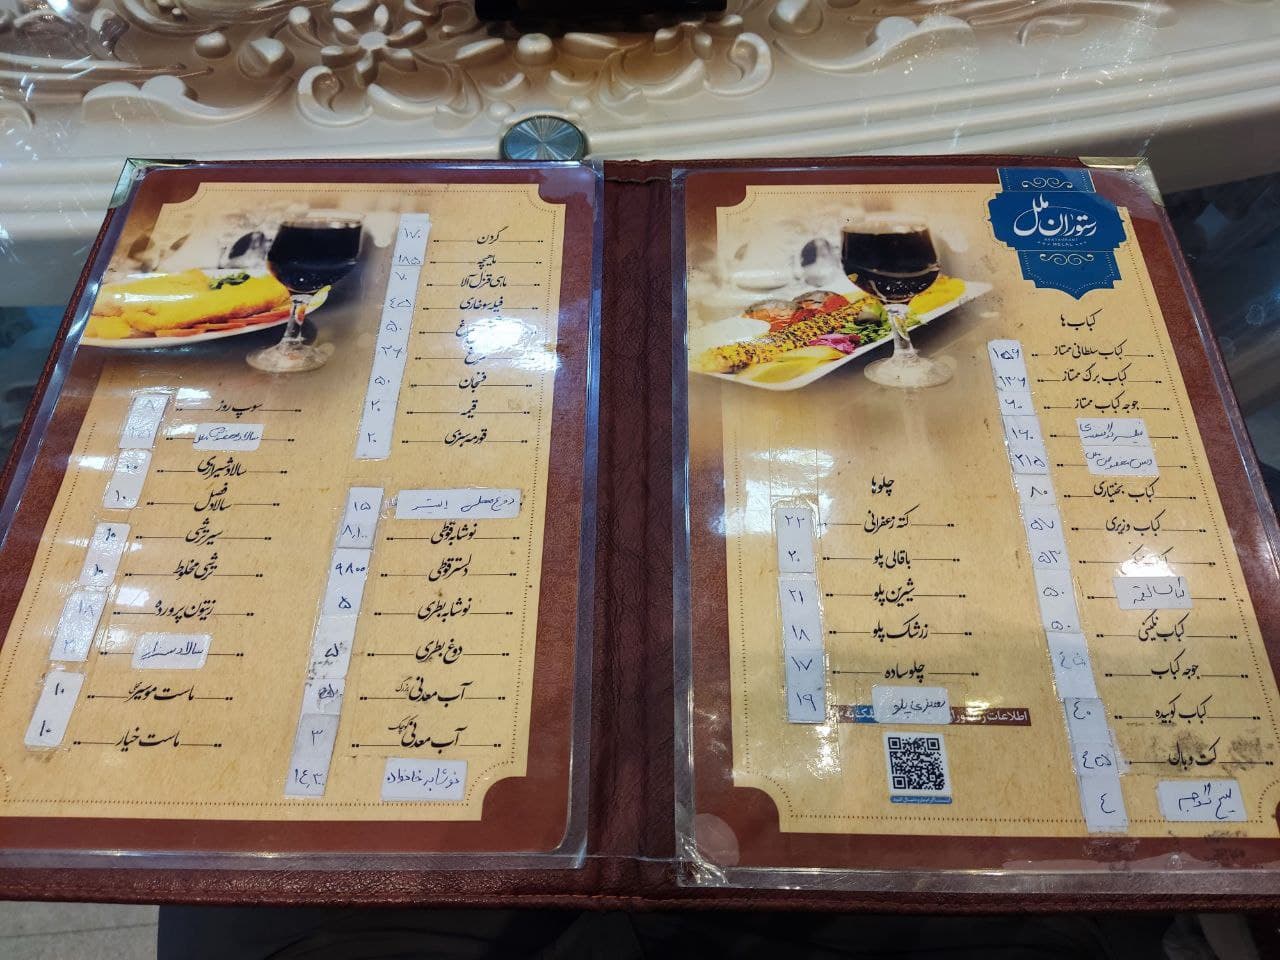 رستوران ملل
RESTAURANT
MELAL
کباب ها
کباب سلطانی ممتاز ۱۵۶
کباب برگ ممتاز ۱۳۶
جوجه کباب ممتاز ۶۰
۱۶۰
۲۱۵
کباب بختیاری ۸۰
کباب وزیری ۵۷
۵۳
کباب لقمه ۵۰
کباب نگینی ۵۰
جوجه کباب ۴۵
کباب کوبیده ۴۰
کت و بال ۴۵
سیخ گوجه ۴
چلوها
کته زعفرانی ۲۲
باقالی پلو ۲۰
شیرین پلو ۲۱
زرشک پلو ۱۸
چلو ساده ۱۷
سبزی پلو ۱۹
اطلاعات
گردن ۱۷۰
ماهیچه ۱۸۵
ماهی قزل آلا ۷۰
فیله سوخاری ۴۵
۵۰
مرغ ۳۶
فنجان ۵۰
قیمه ۲۰
قورمه سبزی ۲۰
دوغ محلی ۱۵
نوشابه قوطی ۸,۱۰۰
دلستر قوطی ۹۸۰۰
نوشابه بطری ۵
دوغ بطری ۵
آب معدنی بزرگ
آب معدنی کوچک ۳
نوشابه خانواده ۱۴,۳۰۰
سوپ روز ۸
سالاد
سالاد شیرازی ۱۰
سالاد فصل ۱۰
سیر ترشی ۱۰
ترشی مخلوط ۱۰
زیتون پرورده ۱۸
سالاد سزار
ماست موسیر ۱۰
ماست خیار ۱۰